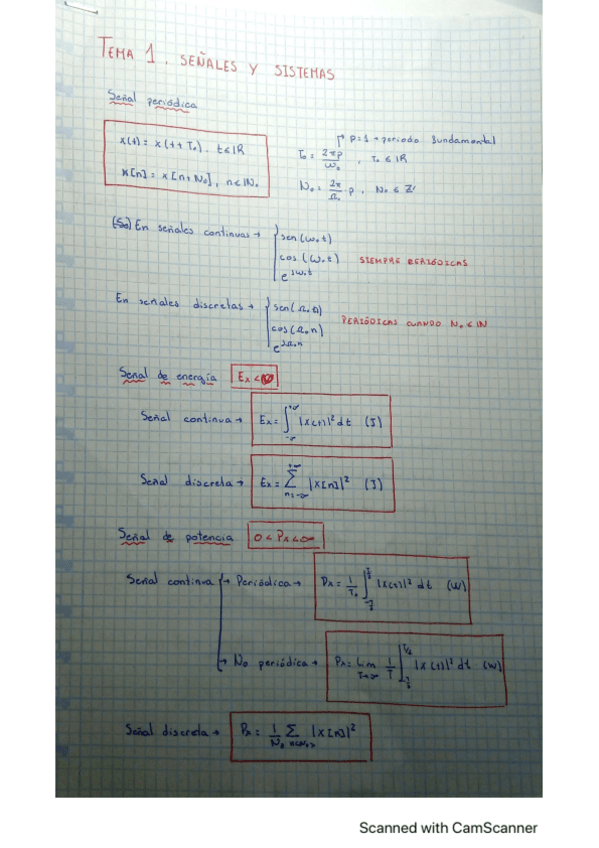 TEMA 1. SEÑALES Y SISTEMAS
Señal periódica
x(t) = x(t+T₀). t∈ℝ
x[n] = x[n+N₀], n∈ℕ.
p=1 → periodo fundamental
T₀ = 2πp/ω₀ , T₀ ∈ ℝ
N₀ = 2π/Ω₀ p, N₀ ∈ ℤ
En señales continuas →
sen(ω₀t)
cos(ω₀t) SIEMPRE PERIÓDICAS
e^jω₀t
En señales discretas →
sen(Ω₀n)
cos(Ω₀n) PERIÓDICAS CUANDO N₀ ∈ ℕ
e^jΩ₀n
Señal de energía Ex < ∞
Señal continua → Ex = ∫_{-∞}^{+∞} |x(t)|² dt (J)
Señal discreta → Ex = Σ_{n=-∞}^{+∞} |x[n]|² (J)
Señal de potencia 0 < Px < ∞
Señal continua → Periódica → Px = 1/T₀ ∫ |x(t)|² dt (W)
→ No periódica → Px = Lim_{T→∞} 1/T ∫ |x(t)|² dt (W)
Señal discreta → Px = 1/N₀ Σ_{n=<N₀>} |x[n]|²
Scanned with CamScanner